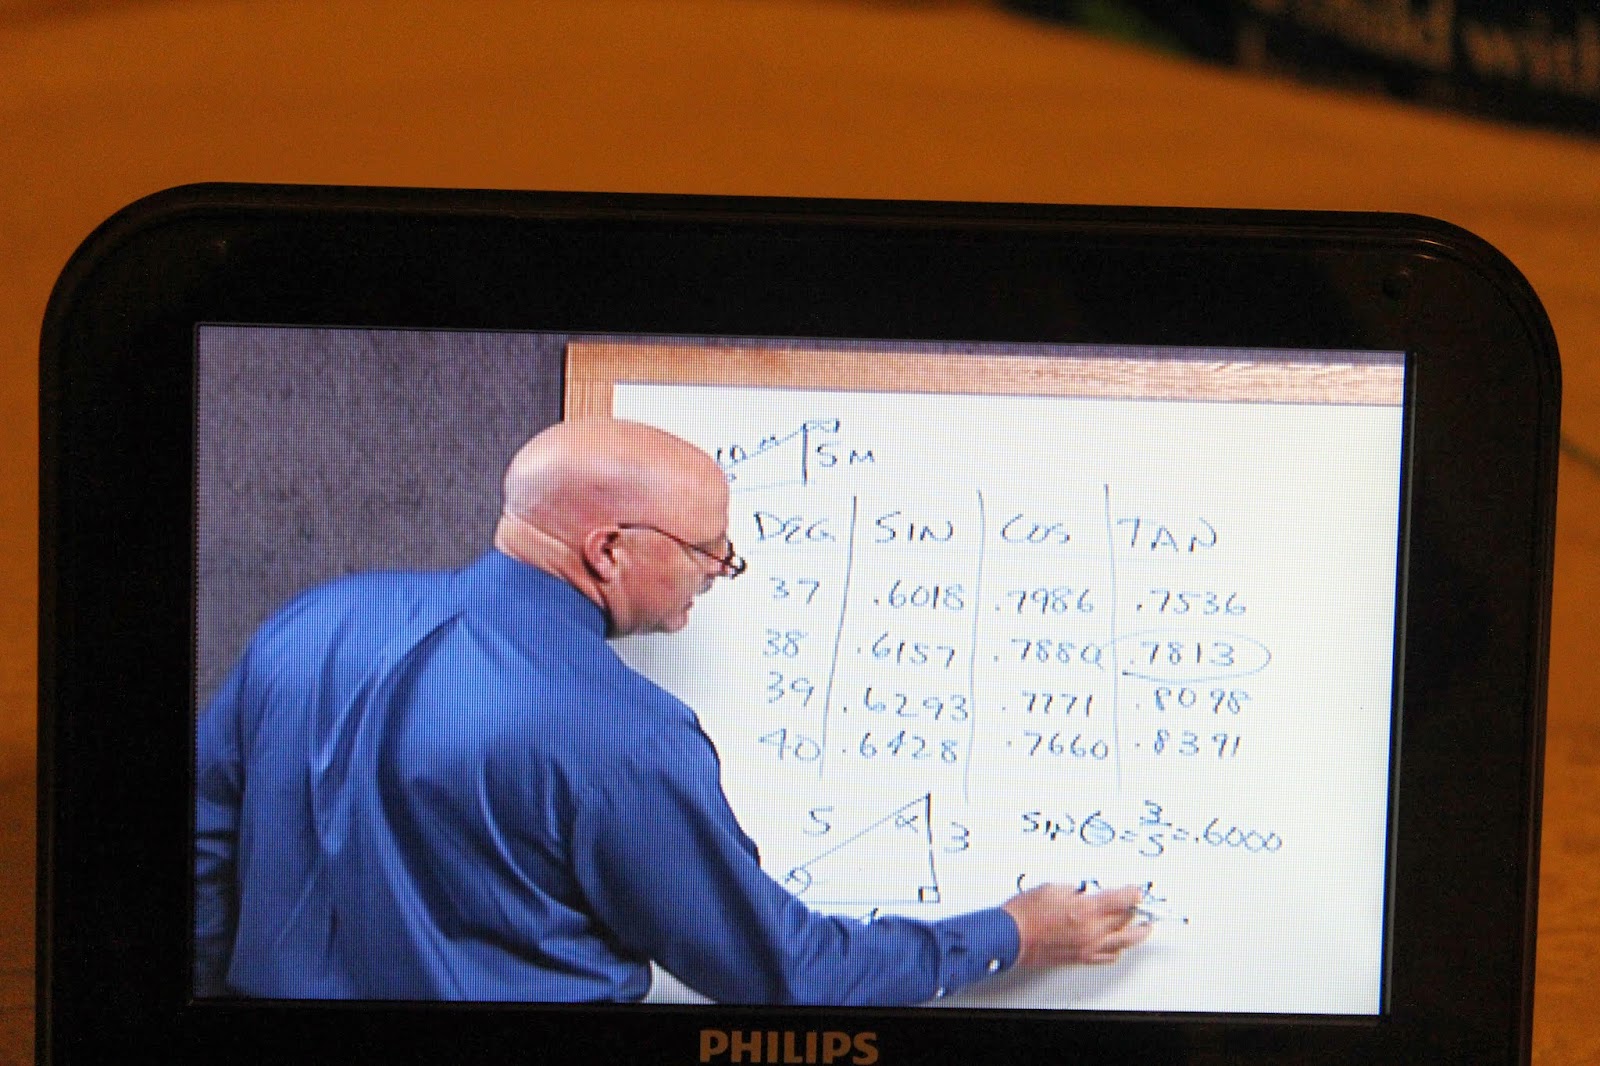 10 M
5 M
DEG SIN COS TAN
37 .6018 .7986 .7536
38 .6157 .7880 .7813
39 .6293 .7771 .8098
40 .6428 .7660 .8391
5 α 3
θ
SIN θ = 3/5 = .6000
PHILIPS